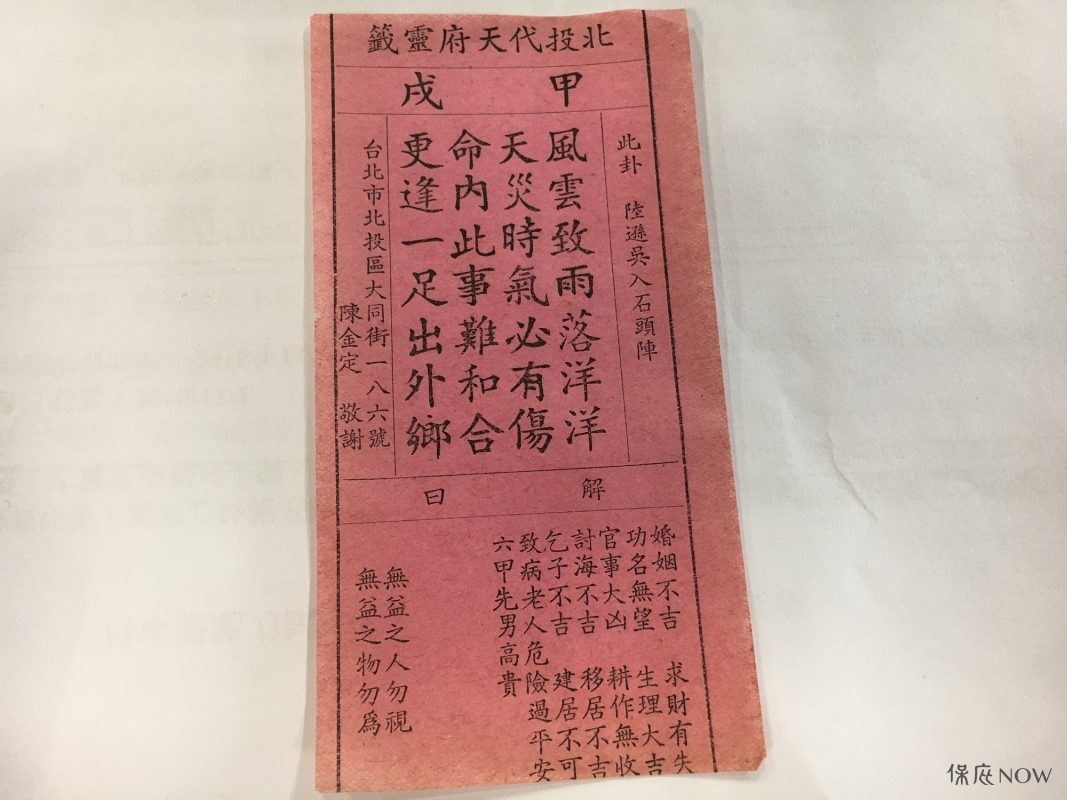 北投代天府靈籤
甲戌
此卦 陸遜吳入石頭陣
風雲致雨落洋洋
天災時氣必有傷
命內此事難和合
更逢一足出外鄉
台北市北投區大同街一八六號
陳金定 敬謝
解曰
婚姻不吉 求財有失
功名無望 生理大吉
官事大凶 耕作無收
討海不吉 移居不吉
乞子不吉 建居不可
致病老人危險過平安
六甲先男高貴
無益之人勿視
無益之物勿為
保庇NOW